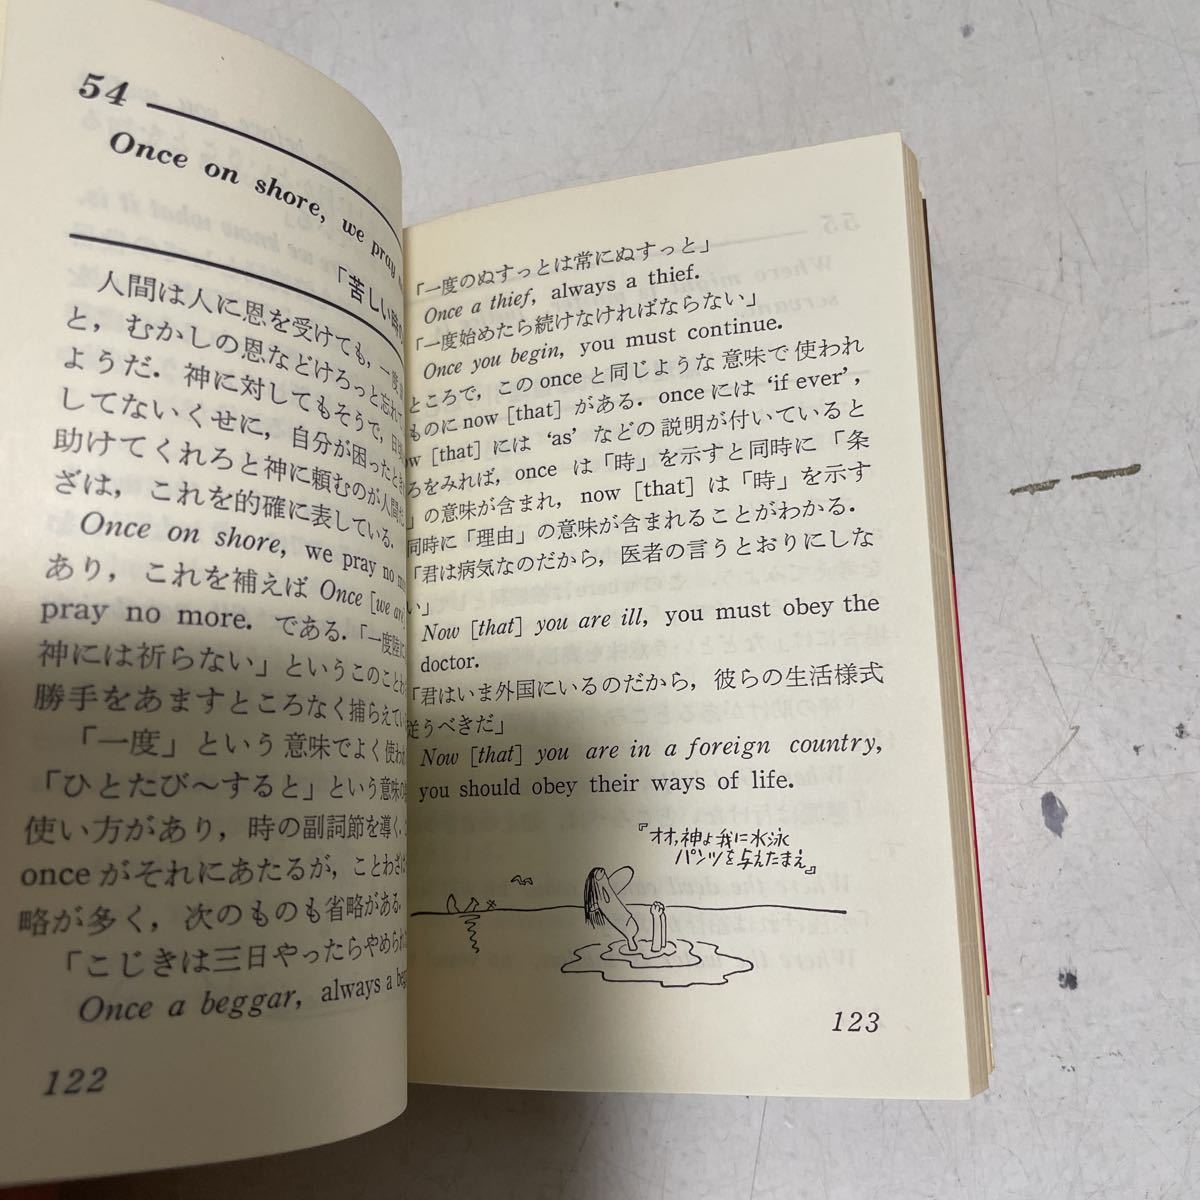 54
Once on shore, we pray
「苦しい時の
人間は人に恩を受けても，一度
と，むかしの恩などけろっと忘れて
ようだ．神に対してもそうで，日頃
してないくせに，自分が困ったとき
助けてくれろと神に頼むのが人間だ
ざは，これを的確に表している．
Once on shore, we pray no
あり，これを補えば Once [we are]
pray no more. である．「一度陸に
神には祈らない」というこのことわ
勝手をあますところなく捕らえてい
「一度」という意味でよく使われ
「ひとたび〜すると」という意味の
使い方があり，時の副詞節を導く．
once がそれにあたるが，ことわざは
略が多く，次のものも省略がある．
「こじきは三日やったらやめられ
Once a beggar, always a
122
「一度のぬすっとは常にぬすっと」
Once a thief, always a thief.
「一度始めたら続けなければならない」
Once you begin, you must continue.
ところで，この once と同じような意味で使われ
ものに now [that] がある．once には ‘if ever’,
now [that] には ‘as’ などの説明が付いていると
ろをみれば，once は「時」を示すと同時に「条
」の意味が含まれ，now [that] は「時」を示す
同時に「理由」の意味が含まれることがわかる．
「君は病気なのだから，医者の言うとおりにしな
い」
Now [that] you are ill, you must obey the
doctor.
「君はいま外国にいるのだから，彼らの生活様式
従うべきだ」
Now [that] you are in a foreign country,
you should obey their ways of life.
『オオ，神よ我に水泳
パンツを与えたまえ』
123